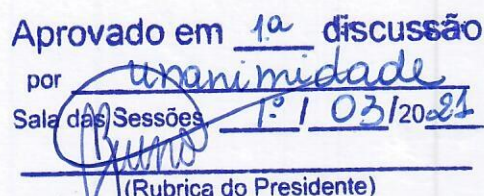 Aprovado em 1ª discussão
por unanimidade
Sala das Sessões 1º / 03/2021
Bruno
(Rubrica do Presidente)